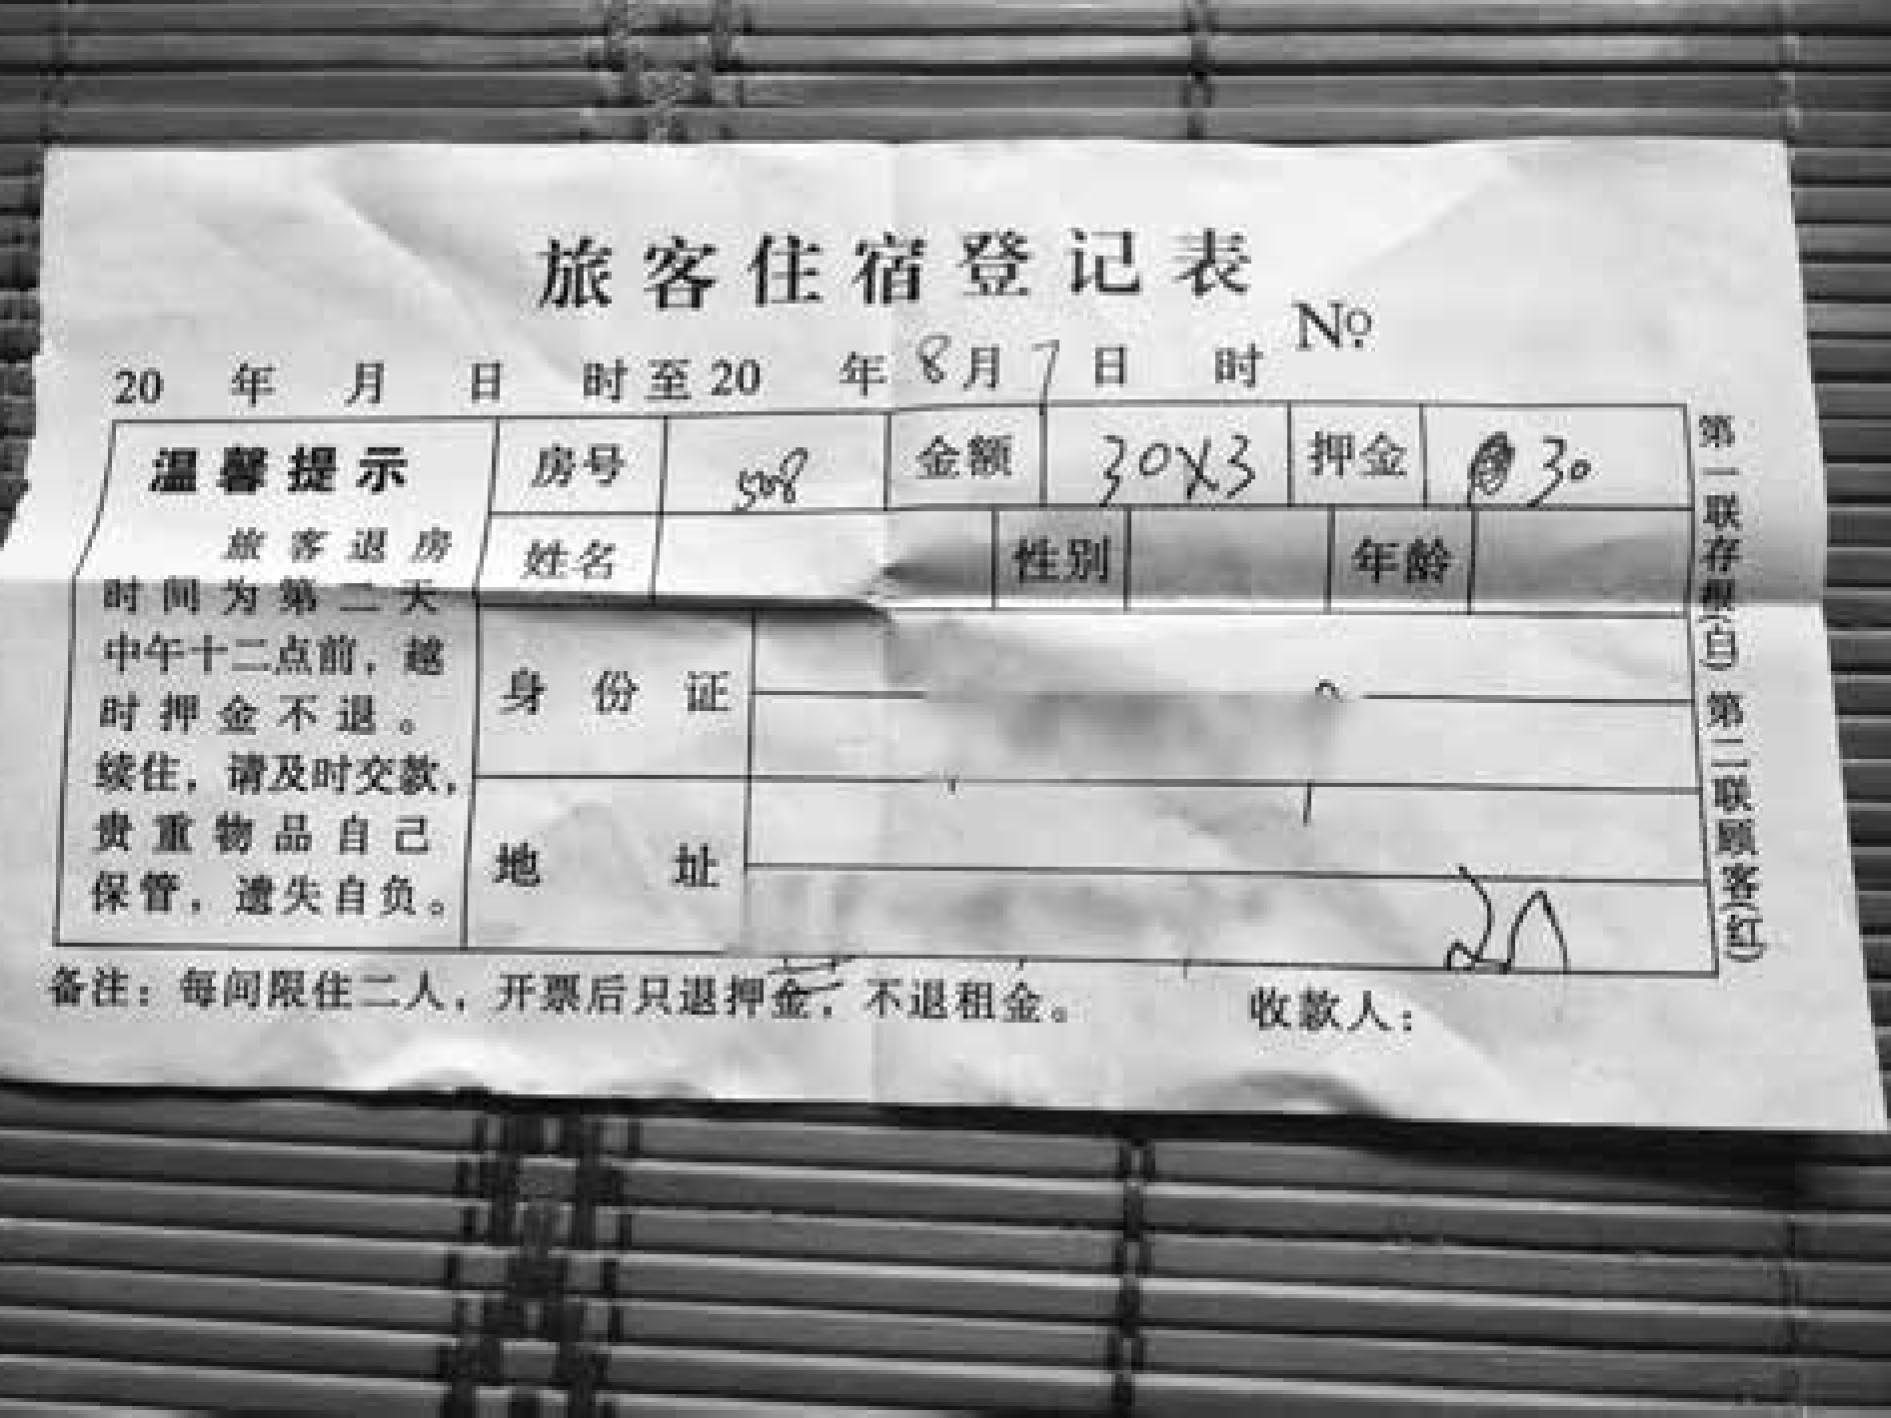 旅客住宿登记表
No
20 年 月 日 时至20 年8月7日 时
温馨提示
旅客退房
时间为第二天
中午十二点前，越
时押金不退。
续住，请及时交款，
贵重物品自己
保管，遗失自负。
房号 508 金额 30X3 押金 30
姓名 性别 年龄
身份证
地址
备注：每间限住二人，开票后只退押金，不退租金。 收款人：
第一联存根(白) 第二联顾客(红)